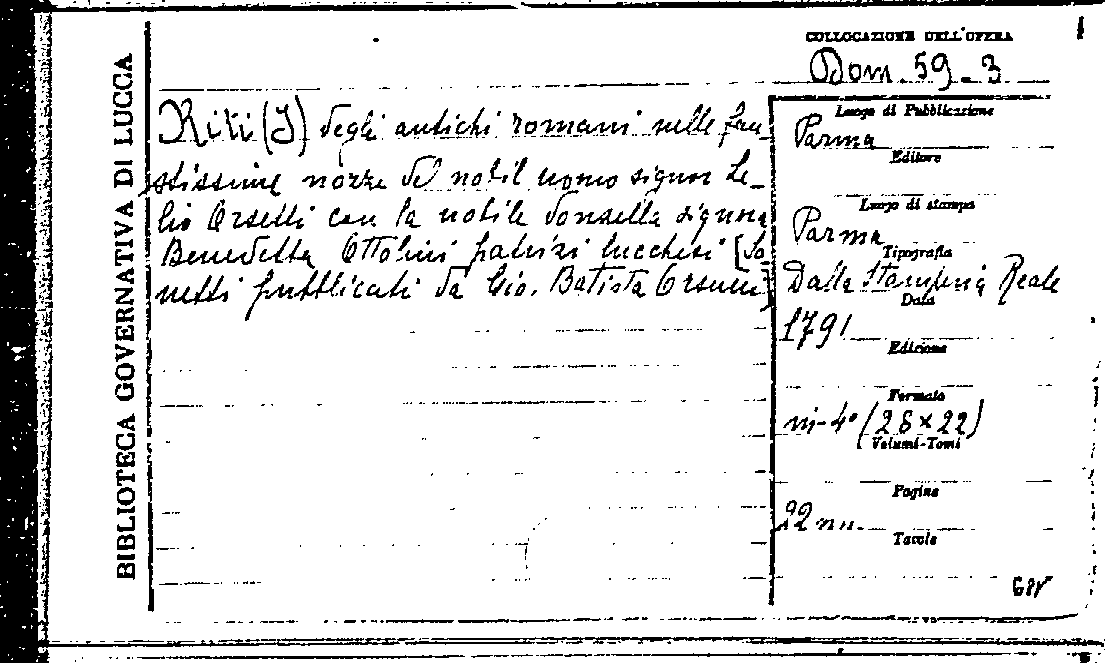 BIBLIOTECA GOVERNATIVA DI LUCCA
COLLOCAZIONE DELL'OPERA
Dom. 59-3
Riti (I) degli antichi romani nelle fau-
stissime nozze del nobil uomo signor Le-
lio Orsetti con la nobile donzella signora
Benedetta Ottolini patrizi lucchesi [So
netti pubblicati da Gio. Batista Orsucci]
Luogo di Pubblicazione
Parma
Editore
Luogo di stampa
Parma
Tipografia
Dalla Stamperia Reale
Data
1791
Edizione
Formato
in-4° (28×22)
Volumi-Tomi
Pagine
22 nn.
Tavole